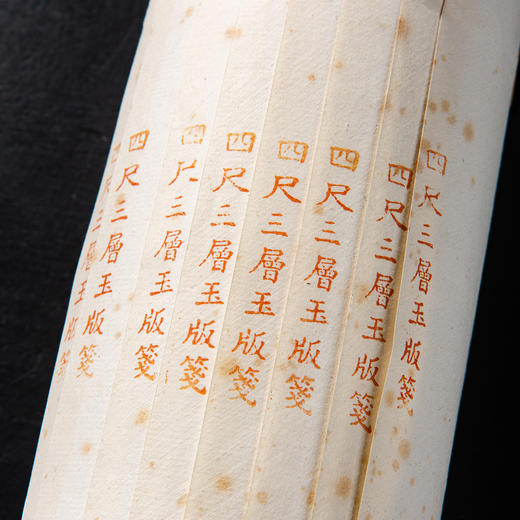 四尺三層玉版箋
四尺三層玉版箋
四尺三層玉版箋
四尺三層玉版箋
四尺三層玉版箋
四尺二層玉版箋
四尺三層玉版箋
尺三層玉版箋